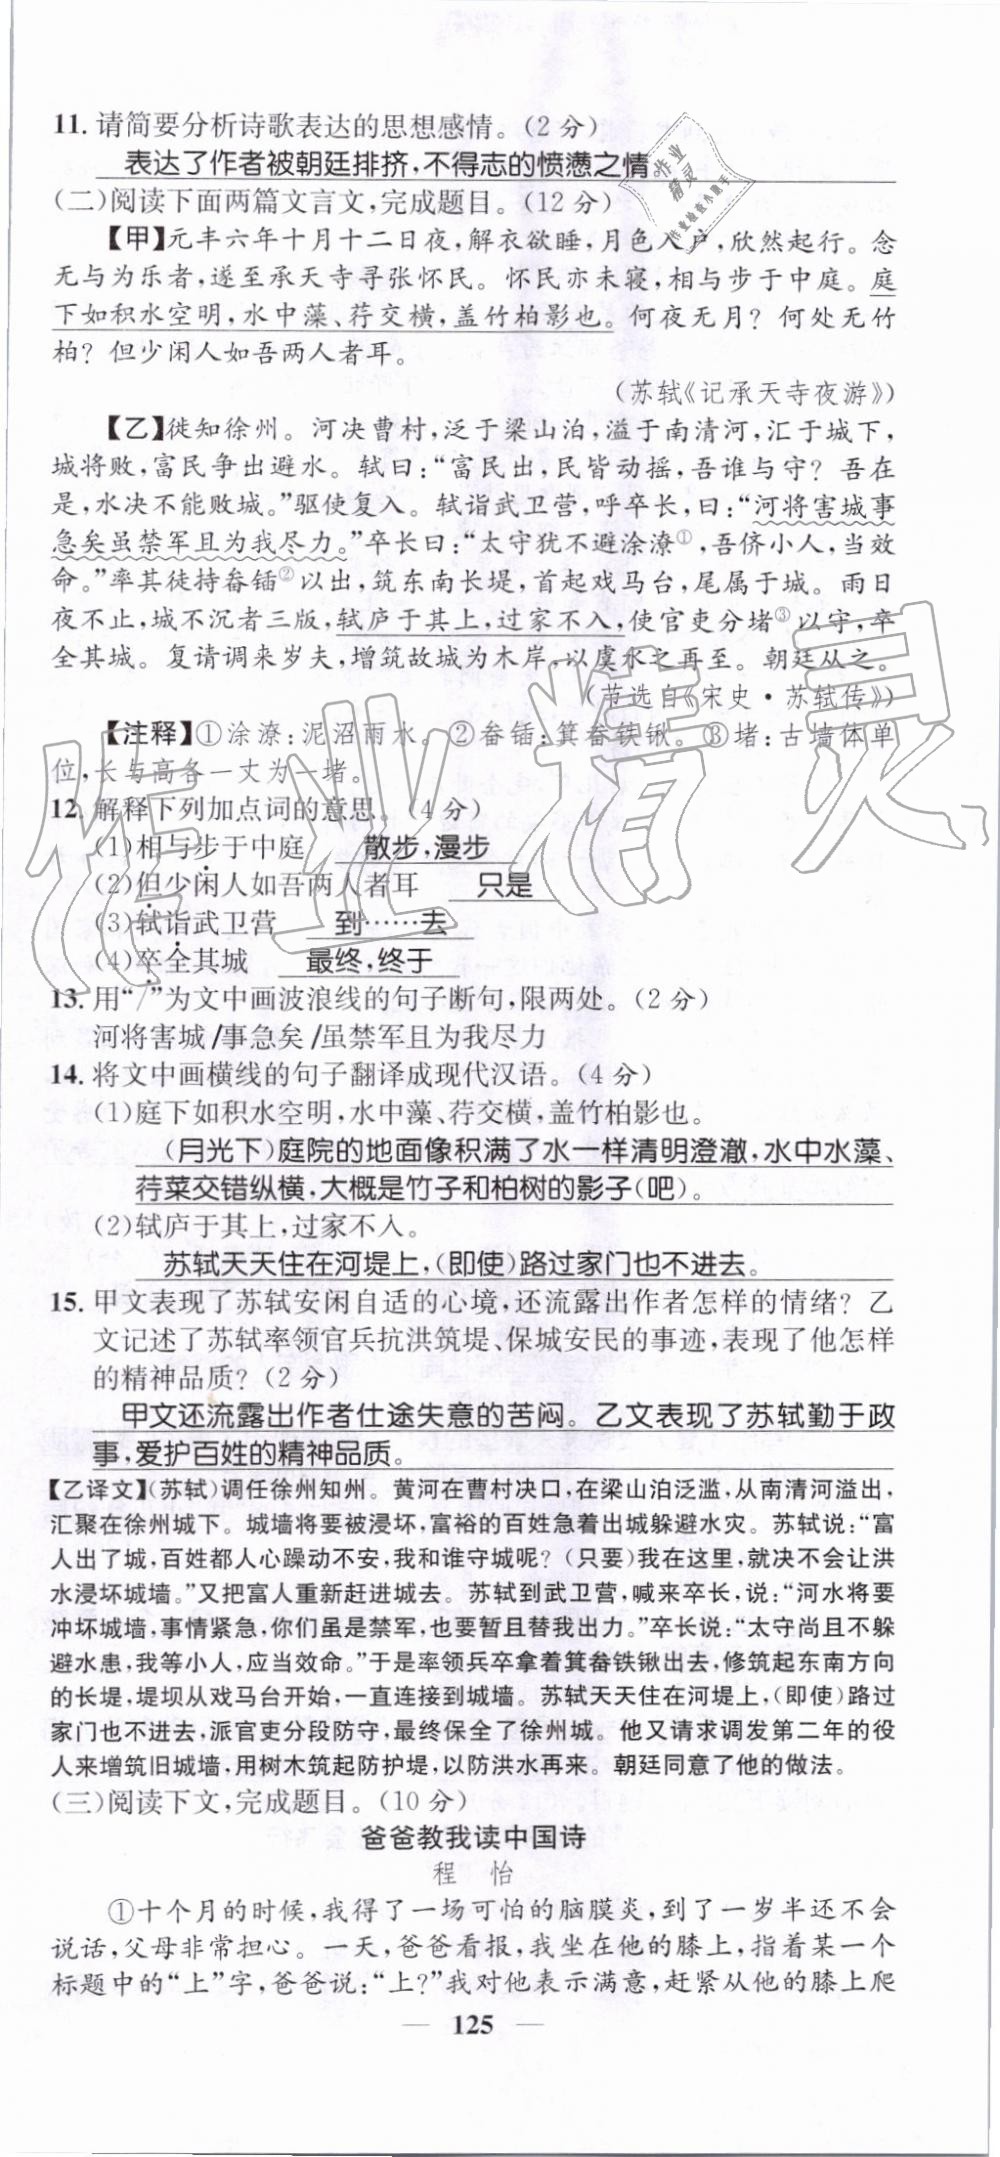 11. 请简要分析诗歌表达的思想感情。(2 分)
表达了作者被朝廷排挤,不得志的愤懑之情。
(二)阅读下面两篇文言文,完成题目。(12 分)
【甲】元丰六年十月十二日夜,解衣欲睡,月色入户,欣然起行。念
无与为乐者,遂至承天寺寻张怀民。怀民亦未寝,相与步于中庭。庭
下如积水空明,水中藻、荇交横,盖竹柏影也。何夜无月?何处无竹
柏?但少闲人如吾两人者耳。
(苏轼《记承天寺夜游》)
【乙】徙知徐州。河决曹村,泛于梁山泊,溢于南清河,汇于城下,
城将败,富民争出避水。轼曰:“富民出,民皆动摇,吾谁与守?吾在
是,水决不能败城。”驱使复入。轼诣武卫营,呼卒长,曰:“河将害城事
急矣虽禁军且为我尽力。”卒长曰:“太守犹不避涂潦①,吾侪小人,当效
命。”率其徒持畚锸②以出,筑东南长堤,首起戏马台,尾属于城。雨日
夜不止,城不沉者三版,轼庐于其上,过家不入,使官吏分堵③以守,卒
全其城。复请调来岁夫,增筑故城为木岸,以虞水之再至。朝廷从之。
(节选自《宋史·苏轼传》)
【注释】①涂潦:泥沼雨水。②畚锸:箕畚铁锹。③堵:古墙体单
位,长与高各一丈为一堵。
12. 解释下列加点词的意思。(4 分)
(1)相与步于中庭 散步,漫步
(2)但少闲人如吾两人者耳 只是
(3)轼诣武卫营 到……去
(4)卒全其城 最终,终于
13. 用“/”为文中画波浪线的句子断句,限两处。(2 分)
河将害城/事急矣/虽禁军且为我尽力
14. 将文中画横线的句子翻译成现代汉语。(4 分)
(1)庭下如积水空明,水中藻、荇交横,盖竹柏影也。
(月光下)庭院的地面像积满了水一样清明澄澈,水中水藻、
荇菜交错纵横,大概是竹子和柏树的影子(吧)。
(2)轼庐于其上,过家不入。
苏轼天天住在河堤上,(即使)路过家门也不进去。
15. 甲文表现了苏轼安闲自适的心境,还流露出作者怎样的情绪?乙
文记述了苏轼率领官兵抗洪筑堤、保城安民的事迹,表现了他怎样
的精神品质?(2 分)
甲文还流露出作者仕途失意的苦闷。乙文表现了苏轼勤于政
事,爱护百姓的精神品质。
【乙译文】(苏轼)调任徐州知州。黄河在曹村决口,在梁山泊泛滥,从南清河溢出,
汇聚在徐州城下。城墙将要被浸坏,富裕的百姓急着出城躲避水灾。苏轼说:“富
人出了城,百姓都人心躁动不安,我和谁守城呢?(只要)我在这里,就决不会让洪
水浸坏城墙。”又把富人重新赶进城去。苏轼到武卫营,喊来卒长,说:“河水将要
冲坏城墙,事情紧急,你们虽是禁军,也要暂且替我出力。”卒长说:“太守尚且不躲
避水患,我等小人,应当效命。”于是率领兵卒拿着箕畚铁锹出去,修筑东南方向
的长堤,堤坝从戏马台开始,一直连接到城墙。苏轼天天住在河堤上,(即使)路过
家门也不进去,派官吏分段防守,最终保全了徐州城。他又请求调发第二年的役
人来增筑旧城墙,用树木筑起防护堤,以防洪水再来。朝廷同意了他的做法。
(三)阅读下文,完成题目。(10 分)
爸爸教我读中国诗
程 怡
①十个月的时候,我得了一场可怕的脑膜炎,到了一岁半还不会
说话,父母非常担心。一天,爸爸看报,我坐在他的膝上,指着某一个
标题中的“上”字,爸爸说:“上?”我对他表示满意,赶紧从他的膝上爬
125
作业精灵